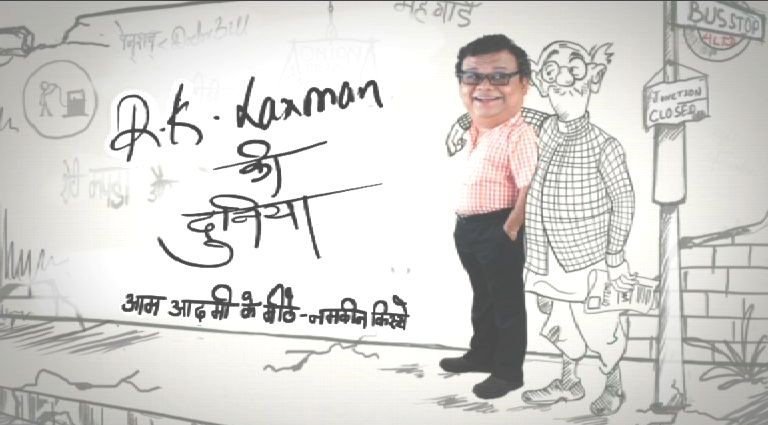 महंगाई
BUS STOP
R.K. Laxman
JUNCTION
CLOSED
की
दुनिया
आम आदमी के मीठे-नमकीन किस्से